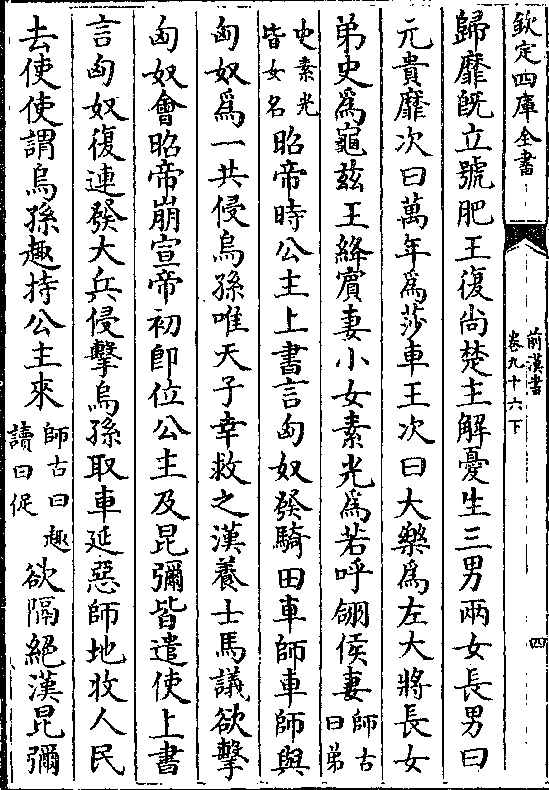 欽定四庫全書
前漢書
卷九十六下
四
歸靡旣立號肥王復尚楚主解憂生三男兩女長男曰
元貴靡次曰萬年為莎車王次曰大樂為左大將長女
弟史為龜茲王絳賓妻小女素光為若呼翎侯妻師古曰弟
史素光皆女名昭帝時公主上書言匈奴發騎田車師車師與
匈奴為一共侵烏孫唯天子幸救之漢養士馬議欲擊
匈奴會昭帝崩宣帝初即位公主及昆彌皆遣使上書
言匈奴復連發大兵侵擊烏孫取車延惡師地收人民
去使使謂烏孫趣持公主來師古曰趣讀曰促欲隔絕漢昆彌